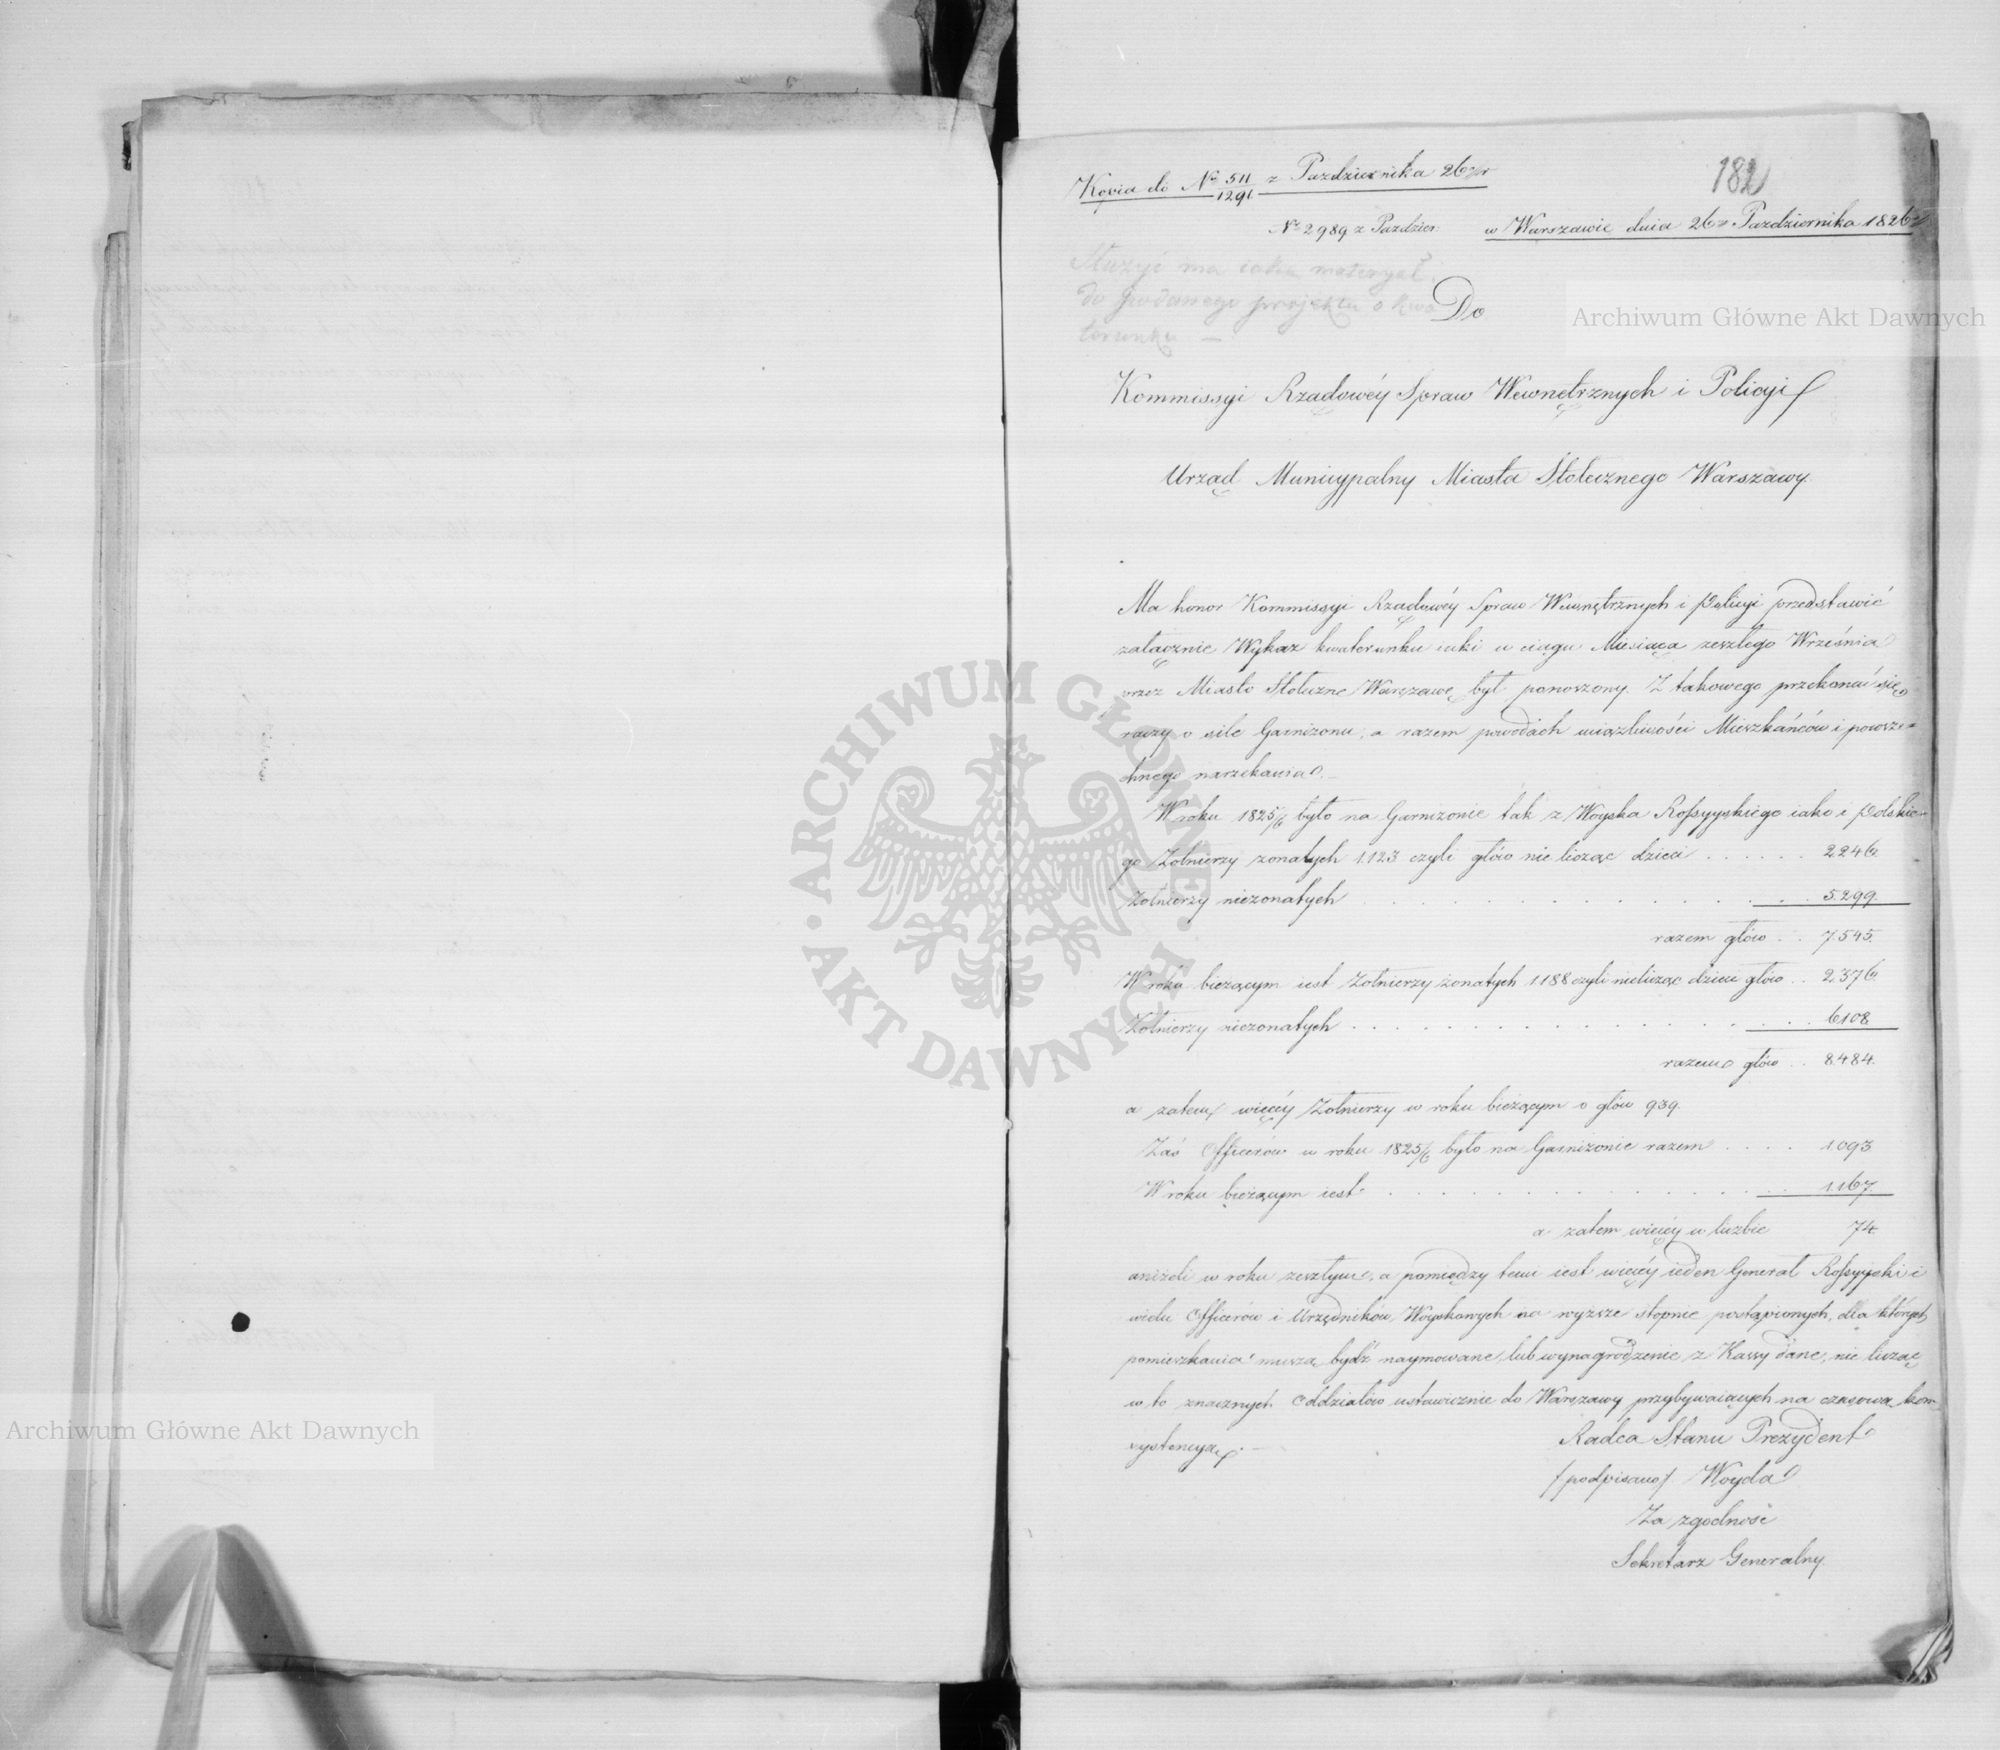 182
Kopia do No 511/1291 z Pazdziernika 26 r
No 2989 z Pazdzier: w Warszawie dnia 26 Pazdziernika 1826
Służyć ma iako materyał
do podanego projektu o kwa
terunku —
Do
Kommissyi Rządowéy Spraw Wewnętrznych i Policyi
Urząd Municypalny Miasta Stołecznego Warszawy.
Ma honor Kommissyi Rządowéy Spraw Wewnętrznych i Policyi przedstawić
załącznie Wykaz kwaterunku iaki w ciągu Miesiąca zeszłego Września
przez Miasto Stołeczne Warszawę był ponoszony. Z takowego przekonać się
raczy o sile Garnizonu, a razem powodach uciążliwości Mieszkańców i powsze=
chnego narzekania. —
W roku 1825/6 było na Garnizonie tak z Woyska Rossyyskiego iako i Polskie=
go Żołnierzy żonatych 1.123 czyli głów nie licząc dzieci . . . . . . 2.246.
Żołnierzy nieżonatych . . . . . . . . . . . . 5.299.
razem głów . . 7.545.
W roku bieżącym iest Żołnierzy żonatych 1188 czyli nielicząc dzieci głów . . 2.376.
Żołnierzy nieżonatych . . . . . . . . . . . . 6108
razem głów . . 8.484.
a zatem więcéy Żołnierzy w roku bieżącym o głów 939.
Zaś Officerów w roku 1825/6 było na Garnizonie razem . . . . 1.093
W roku bieżącym iest . . . . . . . . . . . . 1.167.
a zatem więcéy w liczbie 74.
aniżeli w roku zeszłym, a pomiędzy temi iest więcéy ieden Generał Rossyyski i
wielu Officerów i Urzędników Woyskowych na wyższe stopnie postąpionych, dla których
pomieszkania muszą bydź naymowane, lub wynagrodzenie z Kassy dane, nie licząc
w to znacznych Oddziałów ustawicznie do Warszawy przybywaiących na czasową kon=
systencyą. —
Radca Stanu Prezydent
/podpisano/ Woyda
Za zgodność
Sekretarz Generalny.
Archiwum Główne Akt Dawnych
Archiwum Główne Akt Dawnych
ARCHIWUM GŁÓWNE AKT DAWNYCH